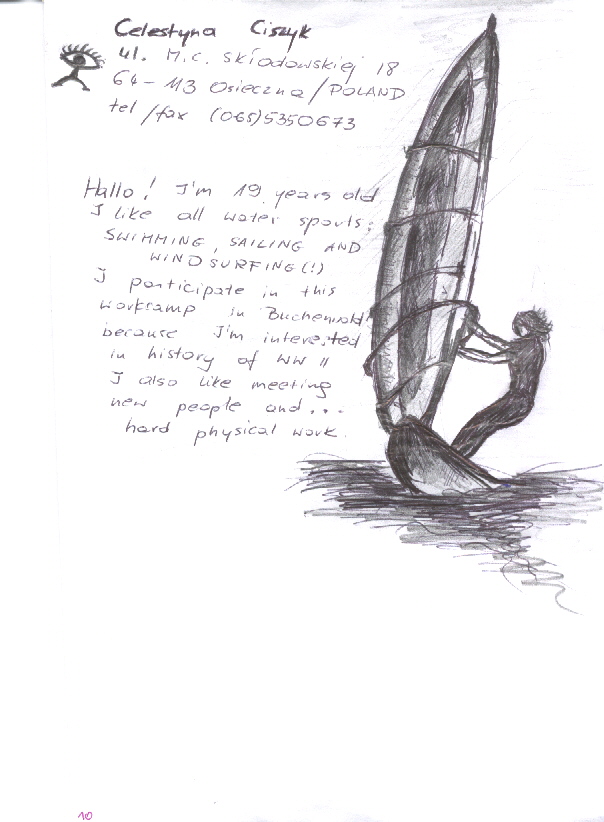 Celestyna Ciszyk
ul. M.C. Skłodowskiej 18
64-113 Osieczna/POLAND
tel/fax (065)5350673
Hallo! I'm 19 years old
I like all water sports:
SWIMMING, SAILING AND
WINDSURFING(!)
I participate in this
workcamp in Buchenwald
because I'm interested
in history of WW II
I also like meeting
new people and...
hard physical work.
10